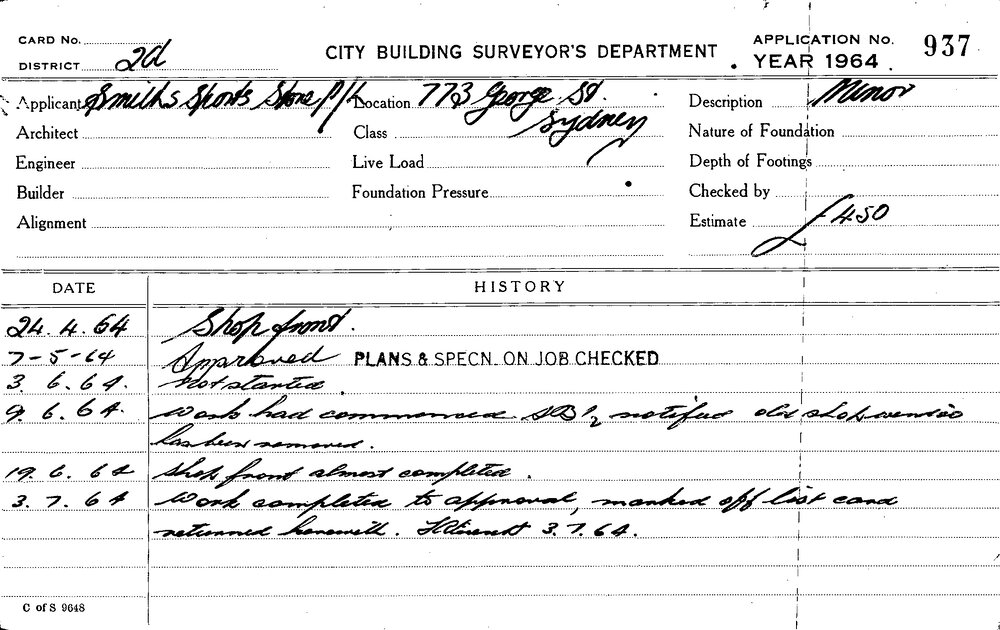 CARD No.
DISTRICT 2d
CITY BUILDING SURVEYOR'S DEPARTMENT
APPLICATION No. 937
YEAR 1964
Applicant Smiths Sports Store P/L Location 773 George St. Description Minor
Sydney
Architect Class Nature of Foundation
Engineer Live Load Depth of Footings
Builder Foundation Pressure Checked by
Alignment Estimate £450
DATE HISTORY
24.4.64 Shop front.
7-5-64 Approved PLANS & SPECN. ON JOB CHECKED
3.6.64. Not started
9.6.64. Work had commenced notified old shop
has been removed.
19.6.64 Shop front almost completed.
3.7.64 Work completed to approval, marked off list card
returned herewith. 3.7.64.
C of S 9648